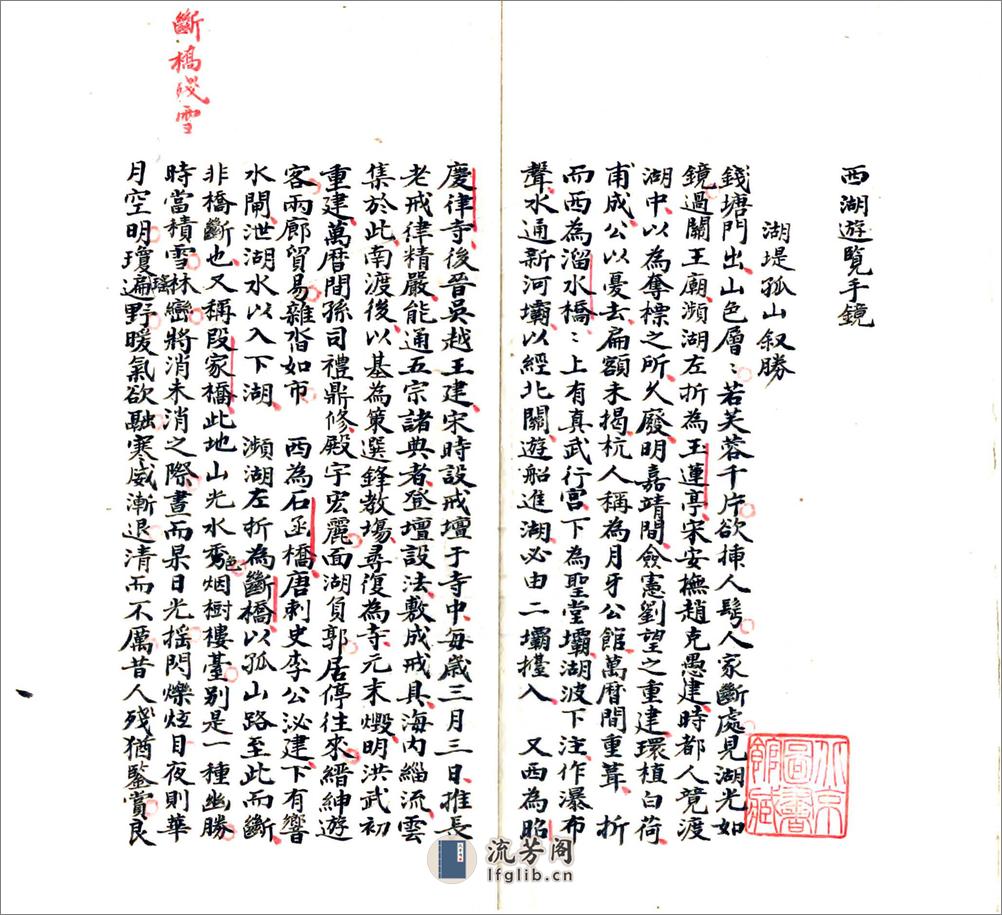 西湖遊覽手鏡
湖堤孤山叙勝
錢塘門出山色層〻若芙蓉千片欲揷人髩人家斷處見湖光如
鏡過關王廟瀕湖左折為玉蓮亭宋安撫趙克愚建時都人競渡
湖中以為奪標之所久廢明嘉靖間僉憲劉望之重建環植白荷
甫成公以憂去扁額未揭杭人稱為月牙公館萬曆間重葺 折
而西為溜水橋〻上有真武行宫下為聖堂壩湖波下注作瀑布
聲水通新河壩以經北關遊船進湖必由二壩擡入 又西為昭
慶律寺後晉吳越王建宋時設戒壇于寺中每歲三月三日推長
老戒律精嚴能通五宗諸典者登壇設法敷成戒具海内緇流雲
集於此南渡後以基為策選鋒教塲尋復為寺元末燬明洪武初
重建萬曆間孫司禮鼎修殿宇宏麗面湖負郭居停往來縉紳遊
客兩廊貿易雜沓如市 西為石函橋唐刺史李公泌建下有響
水閘泄湖水以入下湖 瀕湖左折為斷橋以孤山路至此而斷
非橋斷也又稱段家橋此地山光水秀色烟樹樓臺别是一種幽勝
時當積雪林巒將消未消之際晝而杲日光摇閃爍炫目夜則華
月空明瓊瑤遍野暖氣欲融寒威漸退清而不厲昔人殘猶鑒賞良
斷橋殘雪
北京圖書館藏
流芳阁
lfglib.cn